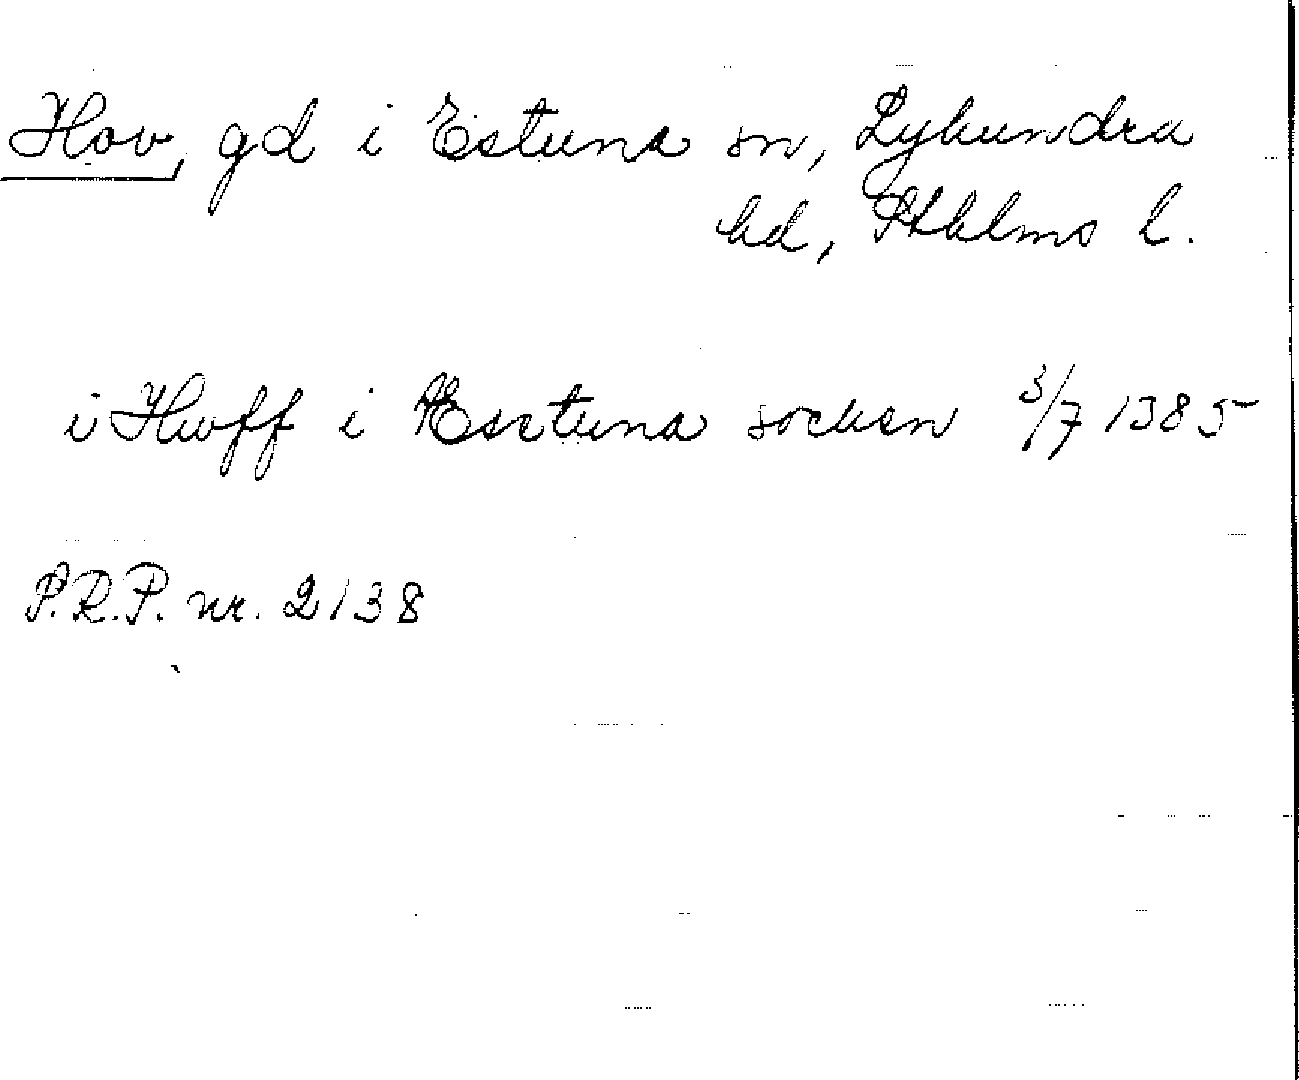 Hov, gd i Estuna sn, Lyhundra
hd, Sthlms l.
i Hwff i Esetuna socken 3/7 1385
P.R.P. nr. 2138